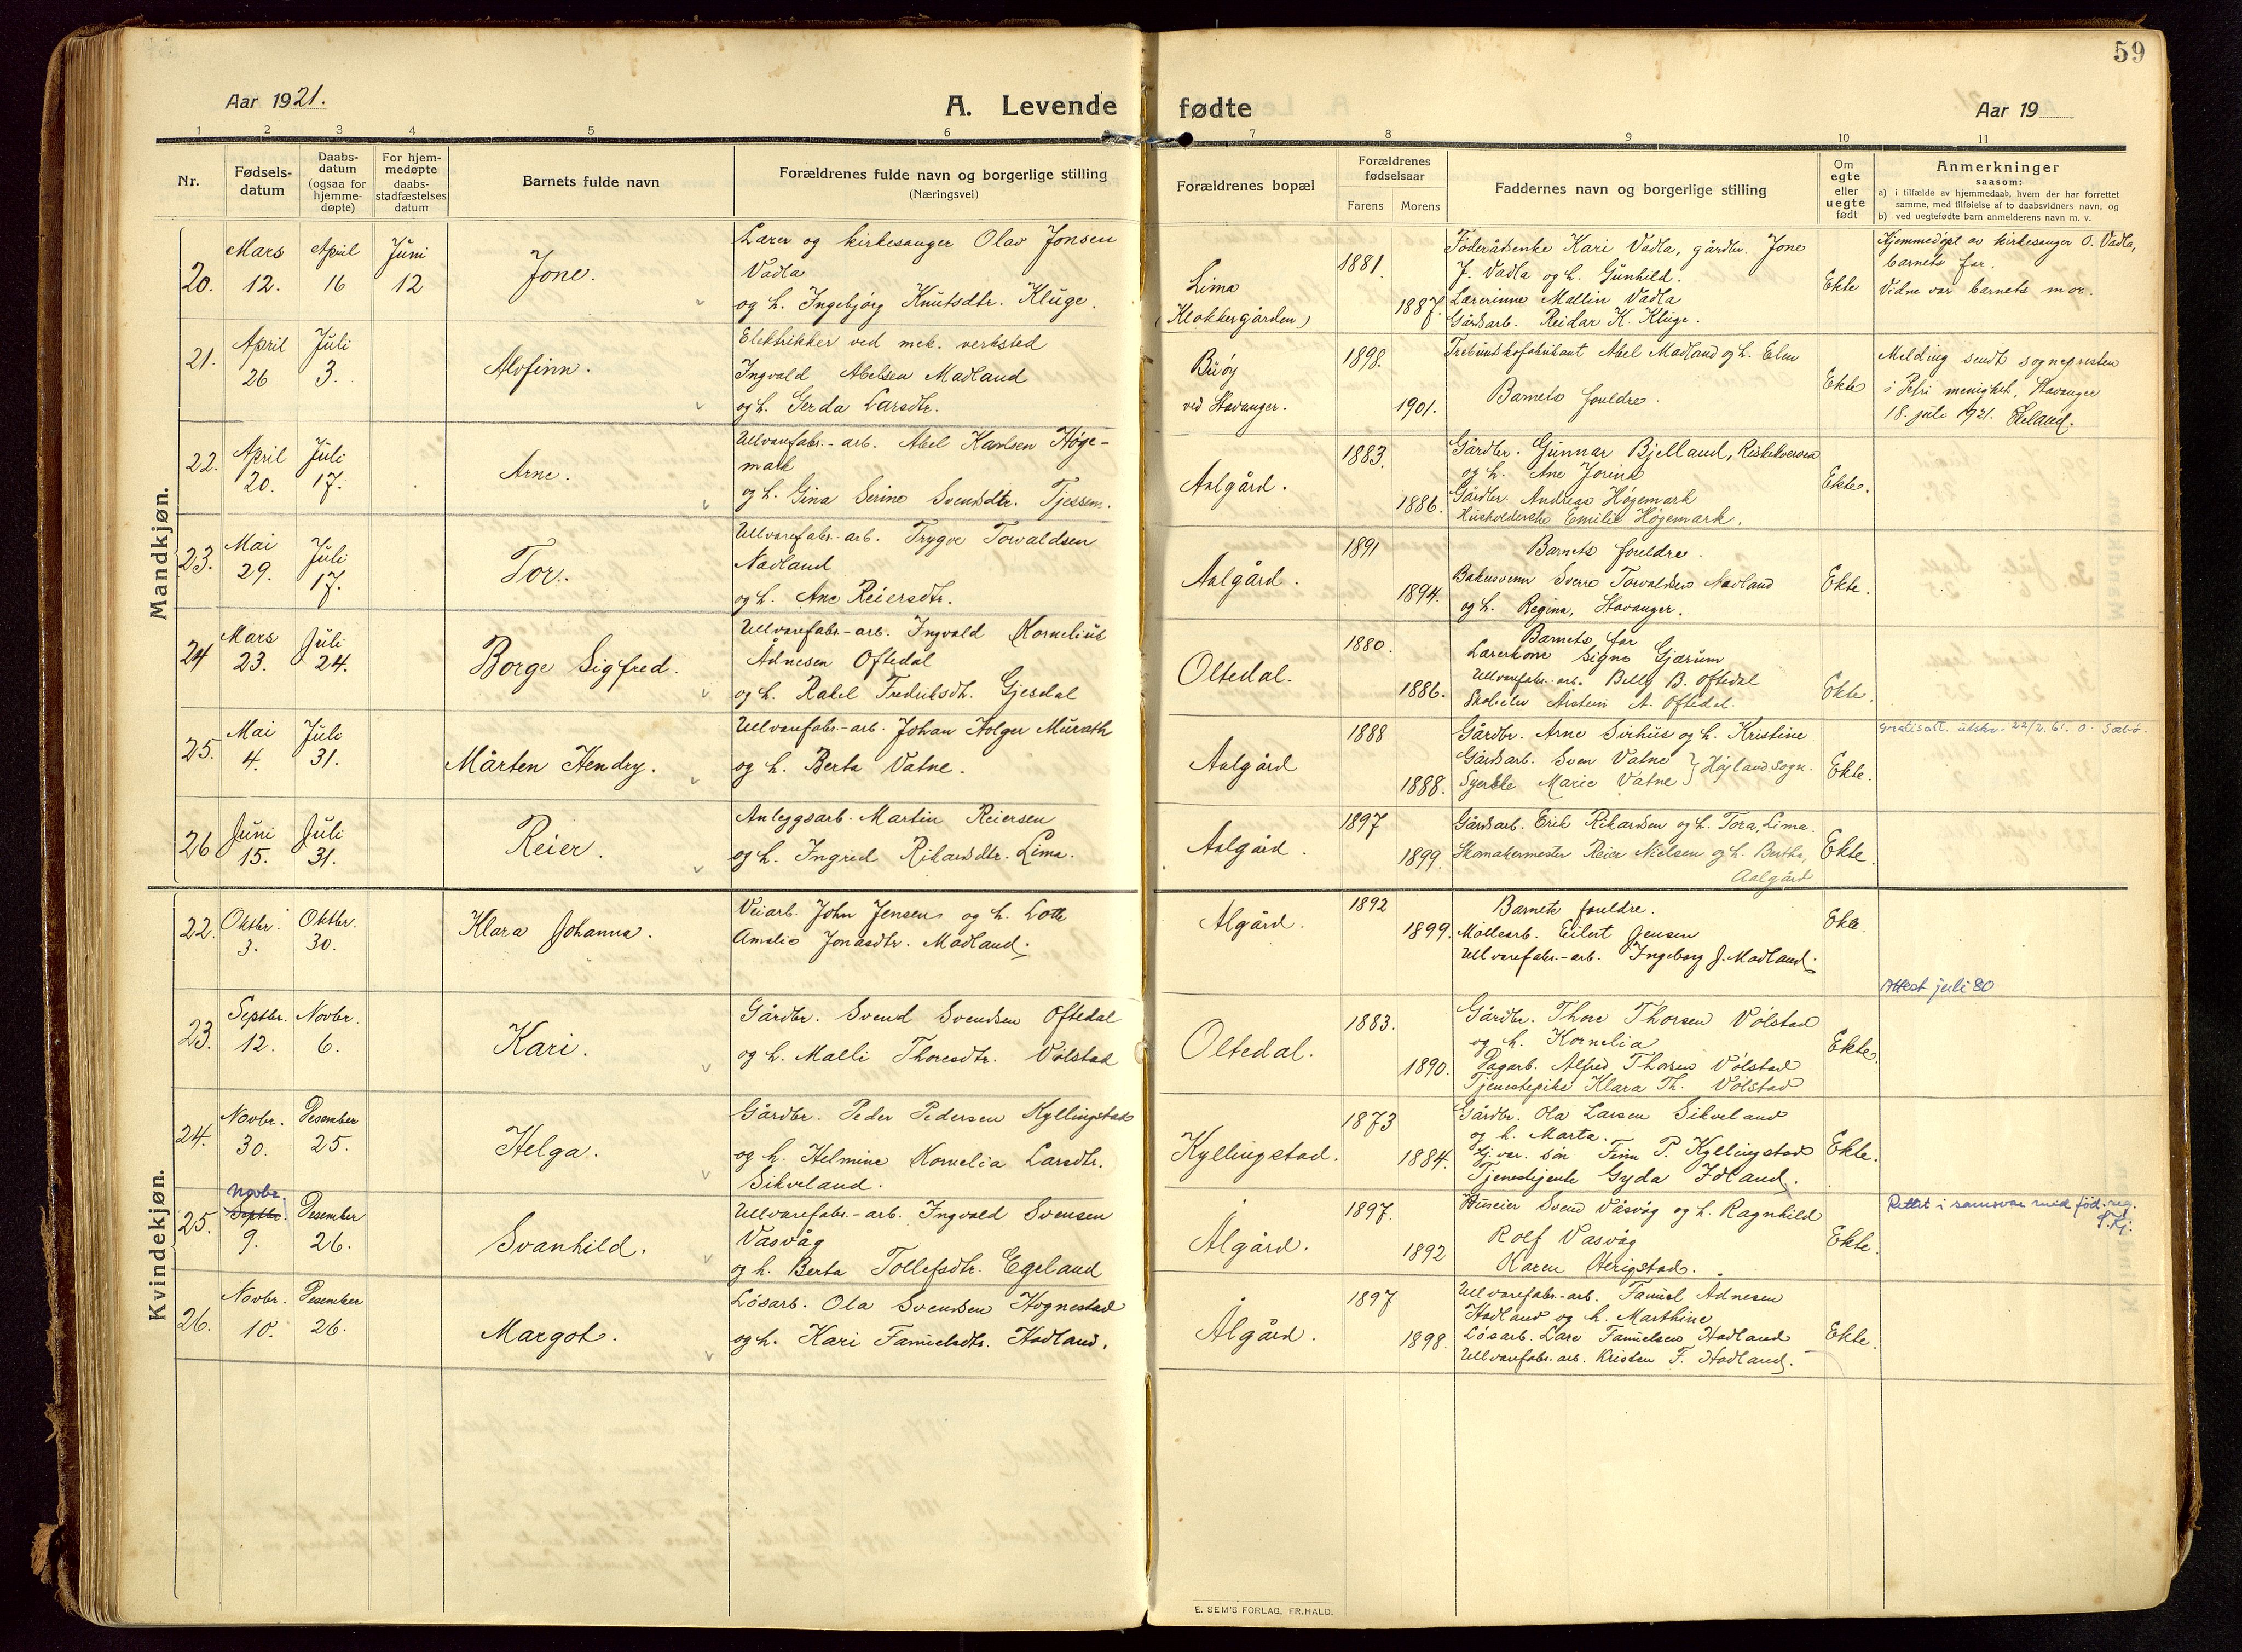 59
Aar 1921.
A. Levende fødte
Aar 19
1 2 3 4 5 6 7 8 9 10 11
Nr.
Fødsels-
datum
Daabs-
datum
(ogsaa for
hjemme-
døpte)
For hjem-
medøpte
daabs-
stadfæstelses
datum
Barnets fulde navn
Forældrenes fulde navn og borgerlige stilling
(Næringsvei)
Forældrenes bopæl
Forældrenes
fødselsaar
Farens Morens
Faddernes navn og borgerlige stilling
Om
egte
eller
uegte
født
Anmerkninger
saasom:
a) i tilfælde av hjemmedaab, hvem der har forrettet
samme, med tilføielse af to daabsvidners navn, og
b) ved uegtefødte barn anmelderens navn m. v.
Mandkjøn.
20.
Mars
12.
April
16
Juni
12
Jone.
Lærer og kirkesanger Olav Jonsen
Vadla
og h. Ingebjørg Knutsdtr. Kluge.
Lima
(Klokkergården)
1881.
1887.
Føderådsenke Kari Vadla, gårdbr. Jone
J. Vadla og h. Gunhild.
Lærerinne Mallin Vadla
Gårdsarb. Reidar K. Kluge.
Ekte
Hjemmedøpt av kirkesanger O. Vadla,
barnets far.
Vidne var barnets mor.
21.
April
26
Juli
3.
Alvfinn.
Elektrikker ved mek. verksted
Ingvald Abelsen Madland
og h. Gerda Larsdtr.
Buøy
ved Stavanger.
1898.
1901.
Abel Madland og h. Elen
Barnets foreldre.
Ekte
Melding sendt sognepresten
i Petri menighet, Stavanger
18. juli 1921.
22.
April
20.
Juli
17.
Arne.
Ullvarefabr.-arb. Abel Karlsen Høge-
mark
og h. Gina Serine Svendsdtr. Tjessem.
Aalgård.
1883.
1886.
Gårdbr. Gunnar Bjelland,
og h. Ane Jorine
Gårdbr. Andreas Høgemark
Husholderske Emilie Høgemark.
Ekte.
23.
Mai
29.
Juli
17.
Tor.
Ullvarefabr.-arb. Trygve Torvaldsen
Nådland
og h. Ane Reiersdtr.
Aalgård.
1891
1894.
Barnets foreldre.
Bakersvenn Sverre Torvaldsen Nådland
og h. Regina, Stavanger.
Ekte.
24
Mars
23.
Juli
24.
Borge Sigfred.
Ullvarefabr.-arb. Ingvald Kornelius
Ådnesen Oftedal
og h. Rakel Fredriksdtr. Gjesdal
Oltedal.
1880.
1886.
Barnets far
Lærerkone Signe Gjærum
Ullvarefabr.-arb. Belly B. Oftedal
Skoleelev Arstein A. Oftedal.
Ekte.
25.
Mai
4.
Juli
31.
Mårten Hendry.
Ullvarefabr.-arb. Johan Holger Murath
og h. Berta Vatne.
Aalgård
1888
1888.
Gårdbr. Arne Sirhus og h. Kristine
Gårdsarb. Sven Vatne } Høyland sogn.
Syerske Marie Vatne
Ekte.
Gratisatt. utskr. 22/2. 61. O. Sæbø.
26
Juni
15.
Juli
31.
Reier.
Anleggsarb. Martin Reiersen
og h. Ingred Rikardsdtr. Lima.
Aalgård.
1897
1899.
Gårdsarb. Erik Rikardsen og h. Tora, Lima.
Skomakermester Reier Nielsen og h. Bertha,
Aalgård
Ekte.
Kvindekjøn.
22.
Oktbr.
3.
Oktbr.
30.
Klara Johanna.
Veiarb. John Jensen og h. Lotte
Amalie Jonasdtr. Madland.
Algård.
1892
1899.
Barnets foreldre.
Møllearb. Eilert Jensen
Ullvarefabr.-arb. Ingeborg J. Madland.
Ekte.
Attest juli 80
23.
Septbr.
12.
Novbr.
6.
Kari.
Gårdbr. Svend Svendsen Oftedal
og h. Malli Thoresdtr. Vølstad
Oltedal.
1883.
1890.
Gårdbr. Thore Thorsen Vølstad
og h. Kornelia
Dagarb. Alfred Thorsen Vølstad
Tjenestepike Klara Th. Vølstad
Ekte.
24.
Novbr.
30.
Desember
25.
Helga.
Gårdbr. Peder Pedersen Kyllingstad
og h. Helmine Kornelia Larsdtr.
Sikveland.
Kyllingstad.
1873
1884.
Gårdbr. Ola Larsen Sikveland
og h. Marta.
Hj.vær. søn Finn P. Kyllingstad
Tjenestjente Gyda Idland.
Ekte.
25.
Novbr.
Septbr.
9.
Desember
26.
Svanhild.
Ullvarefabr.-arb. Ingvald Svensen
Vasvåg
og h. Berta Tollefsdtr. Egeland
Ålgård.
1897.
1892
Huseier Svend Vasvåg og h. Ragnhild
Rolf Vasvåg
Karen Herigstad.
Ekte.
Rettet i samsvar med fød. reg.
26.
Novbr.
10.
Desember
26.
Margot.
Løsarb. Ola Svendsen Hognestad
og h. Kari Famuelsdtr. Hadland.
Ålgård.
1897
1898.
Ullvarefabr.-arb. Famuel Adnesen
Hadland og h. Marthine
Løsarb. Lars Famuelsen Hadland
Ullvarefabr.arb. Kristen F. Hadland.
Ekte.
E. SEM'S FORLAG, FR.HALD.